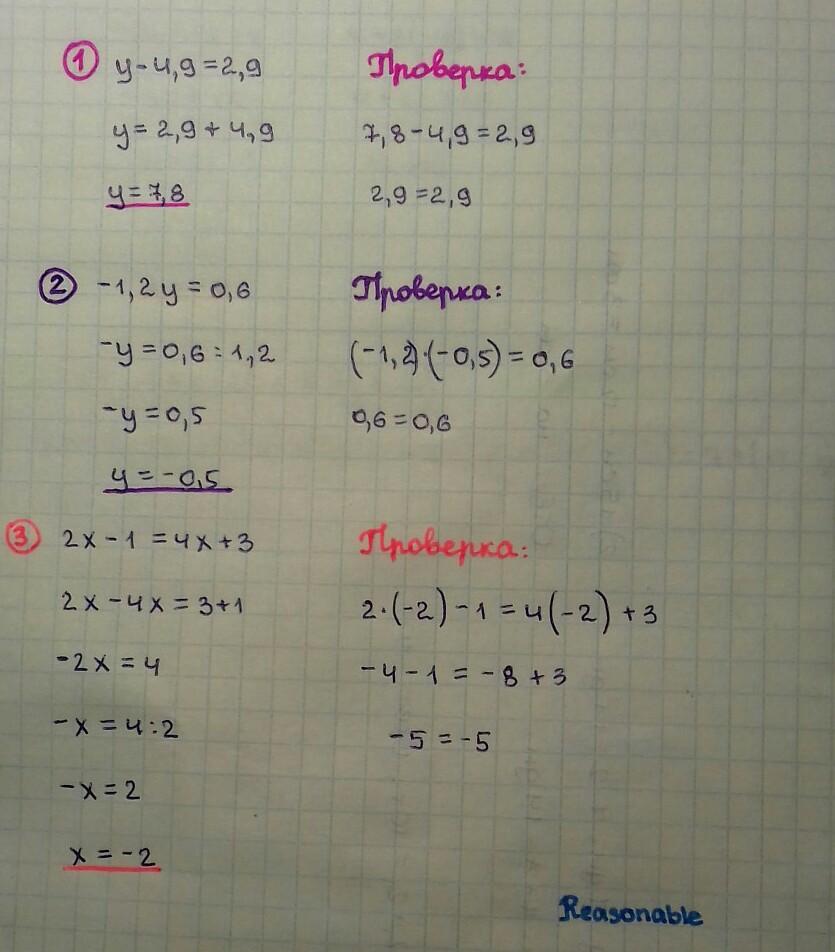 1 y - 4,9 = 2,9
y = 2,9 + 4,9
y = 7,8
Проверка:
7,8 - 4,9 = 2,9
2,9 = 2,9
2 -1,2y = 0,6
-y = 0,6 : 1,2
-y = 0,5
y = -0,5
Проверка:
(-1,2)·(-0,5) = 0,6
0,6 = 0,6
3 2x - 1 = 4x + 3
2x - 4x = 3 + 1
-2x = 4
-x = 4 : 2
-x = 2
x = -2
Проверка:
2·(-2) - 1 = 4(-2) + 3
-4 - 1 = -8 + 3
-5 = -5
Reasonable